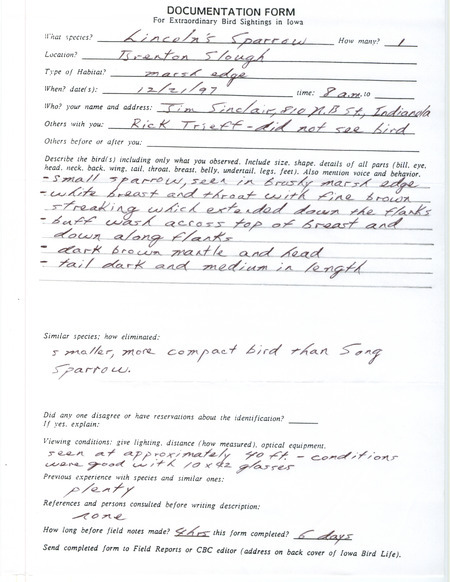 DOCUMENTATION FORM
For Extraordinary Bird Sightings in Iowa
What species? Lincoln's Sparrow How many? 1
Location? Brenton Slough
Type of Habitat? marsh edge
When? date(s): 12/21/97 time: 8 am to
Who? your name and address: Jim Sinclair, 810 N. B St, Indianola
Others with you: Rick Trieff - did not see bird
Others before or after you:
Describe the bird(s) including only what you observed. Include size, shape, details of all parts (bill, eye,
head, neck, back, wing, tail, throat, breast, belly, undertail, legs, feet). Also mention voice and behavior.
- small sparrow, seen in brushy marsh edge
- white breast and throat with fine brown
streaking which extended down the flanks
- buff wash across top of breast and
down along flanks
- dark brown mantle and head
- tail dark and medium in length
Similar species; how eliminated:
smaller, more compact bird than Song
Sparrow.
Did any one disagree or have reservations about the identification?
If yes, explain:
Viewing conditions: give lighting, distance (how measured), optical equipment.
seen at approximately 40 ft. - conditions
were good with 10x42 glasses
Previous experience with species and similar ones:
plenty
References and persons consulted before writing description:
none
How long before field notes made? 4 hrs this form completed? 6 days
Send completed form to Field Reports or CBC editor (address on back cover of Iowa Bird Life).